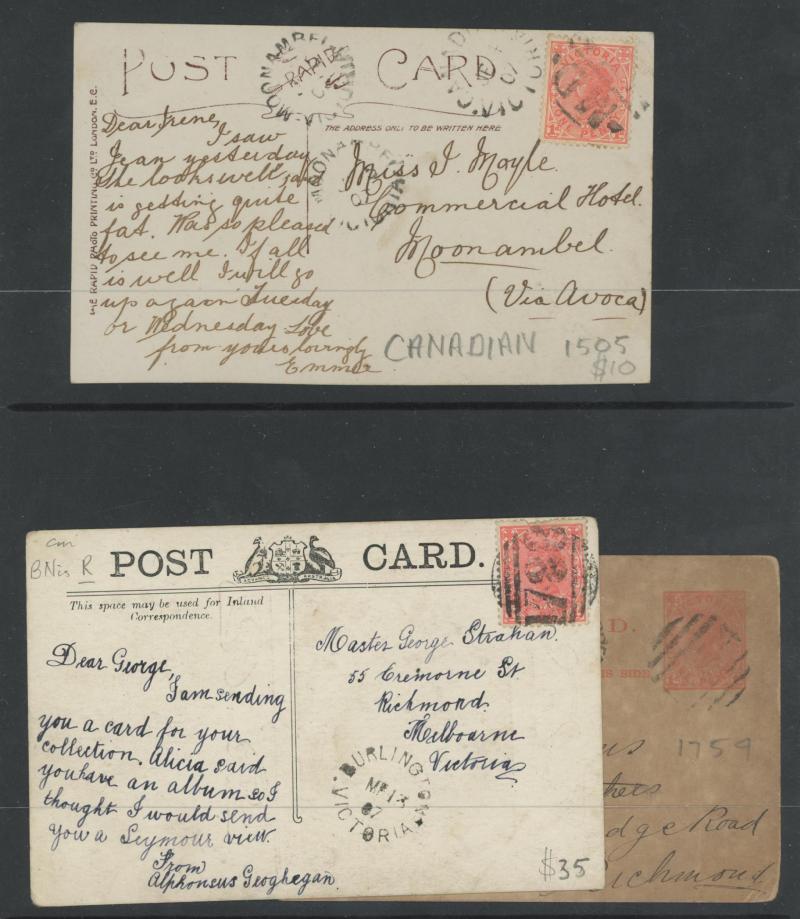 POST CARD.
THE ADDRESS ONLY TO BE WRITTEN HERE
THE RAPID PHOTO PRINTING Co LTD LONDON. E.C.
RAPID
MOONAMBEL
VICTORIA
Dear Irene
I saw
Jean yesterday
She looks well, and
is getting quite
fat. Was so pleased
to see me. If all
is well I will go
up again Tuesday
or Wednesday Love
from yours lovingly
Emmie
Miss I. Moyle.
Commercial Hotel.
Moonambel.
(Via Avoca)
CANADIAN 1505
$10
VICTORIA
ONE PENNY
BNis R
POST CARD.
ADVANCE AUSTRALIA
This space may be used for Inland
Correspondence.
Dear George,
I am sending
you a card for your
collection. Alicia said
you have an album so I
thought I would send
you a Seymour view.
From
Alphonsus Geoghegan.
Master George Strahan.
55 Cremorne St
Richmond.
Melbourne
Victoria
BURLINGTON
07
VICTORIA
$35
D.
HIS SIDE
1759
dge Road
Richmond